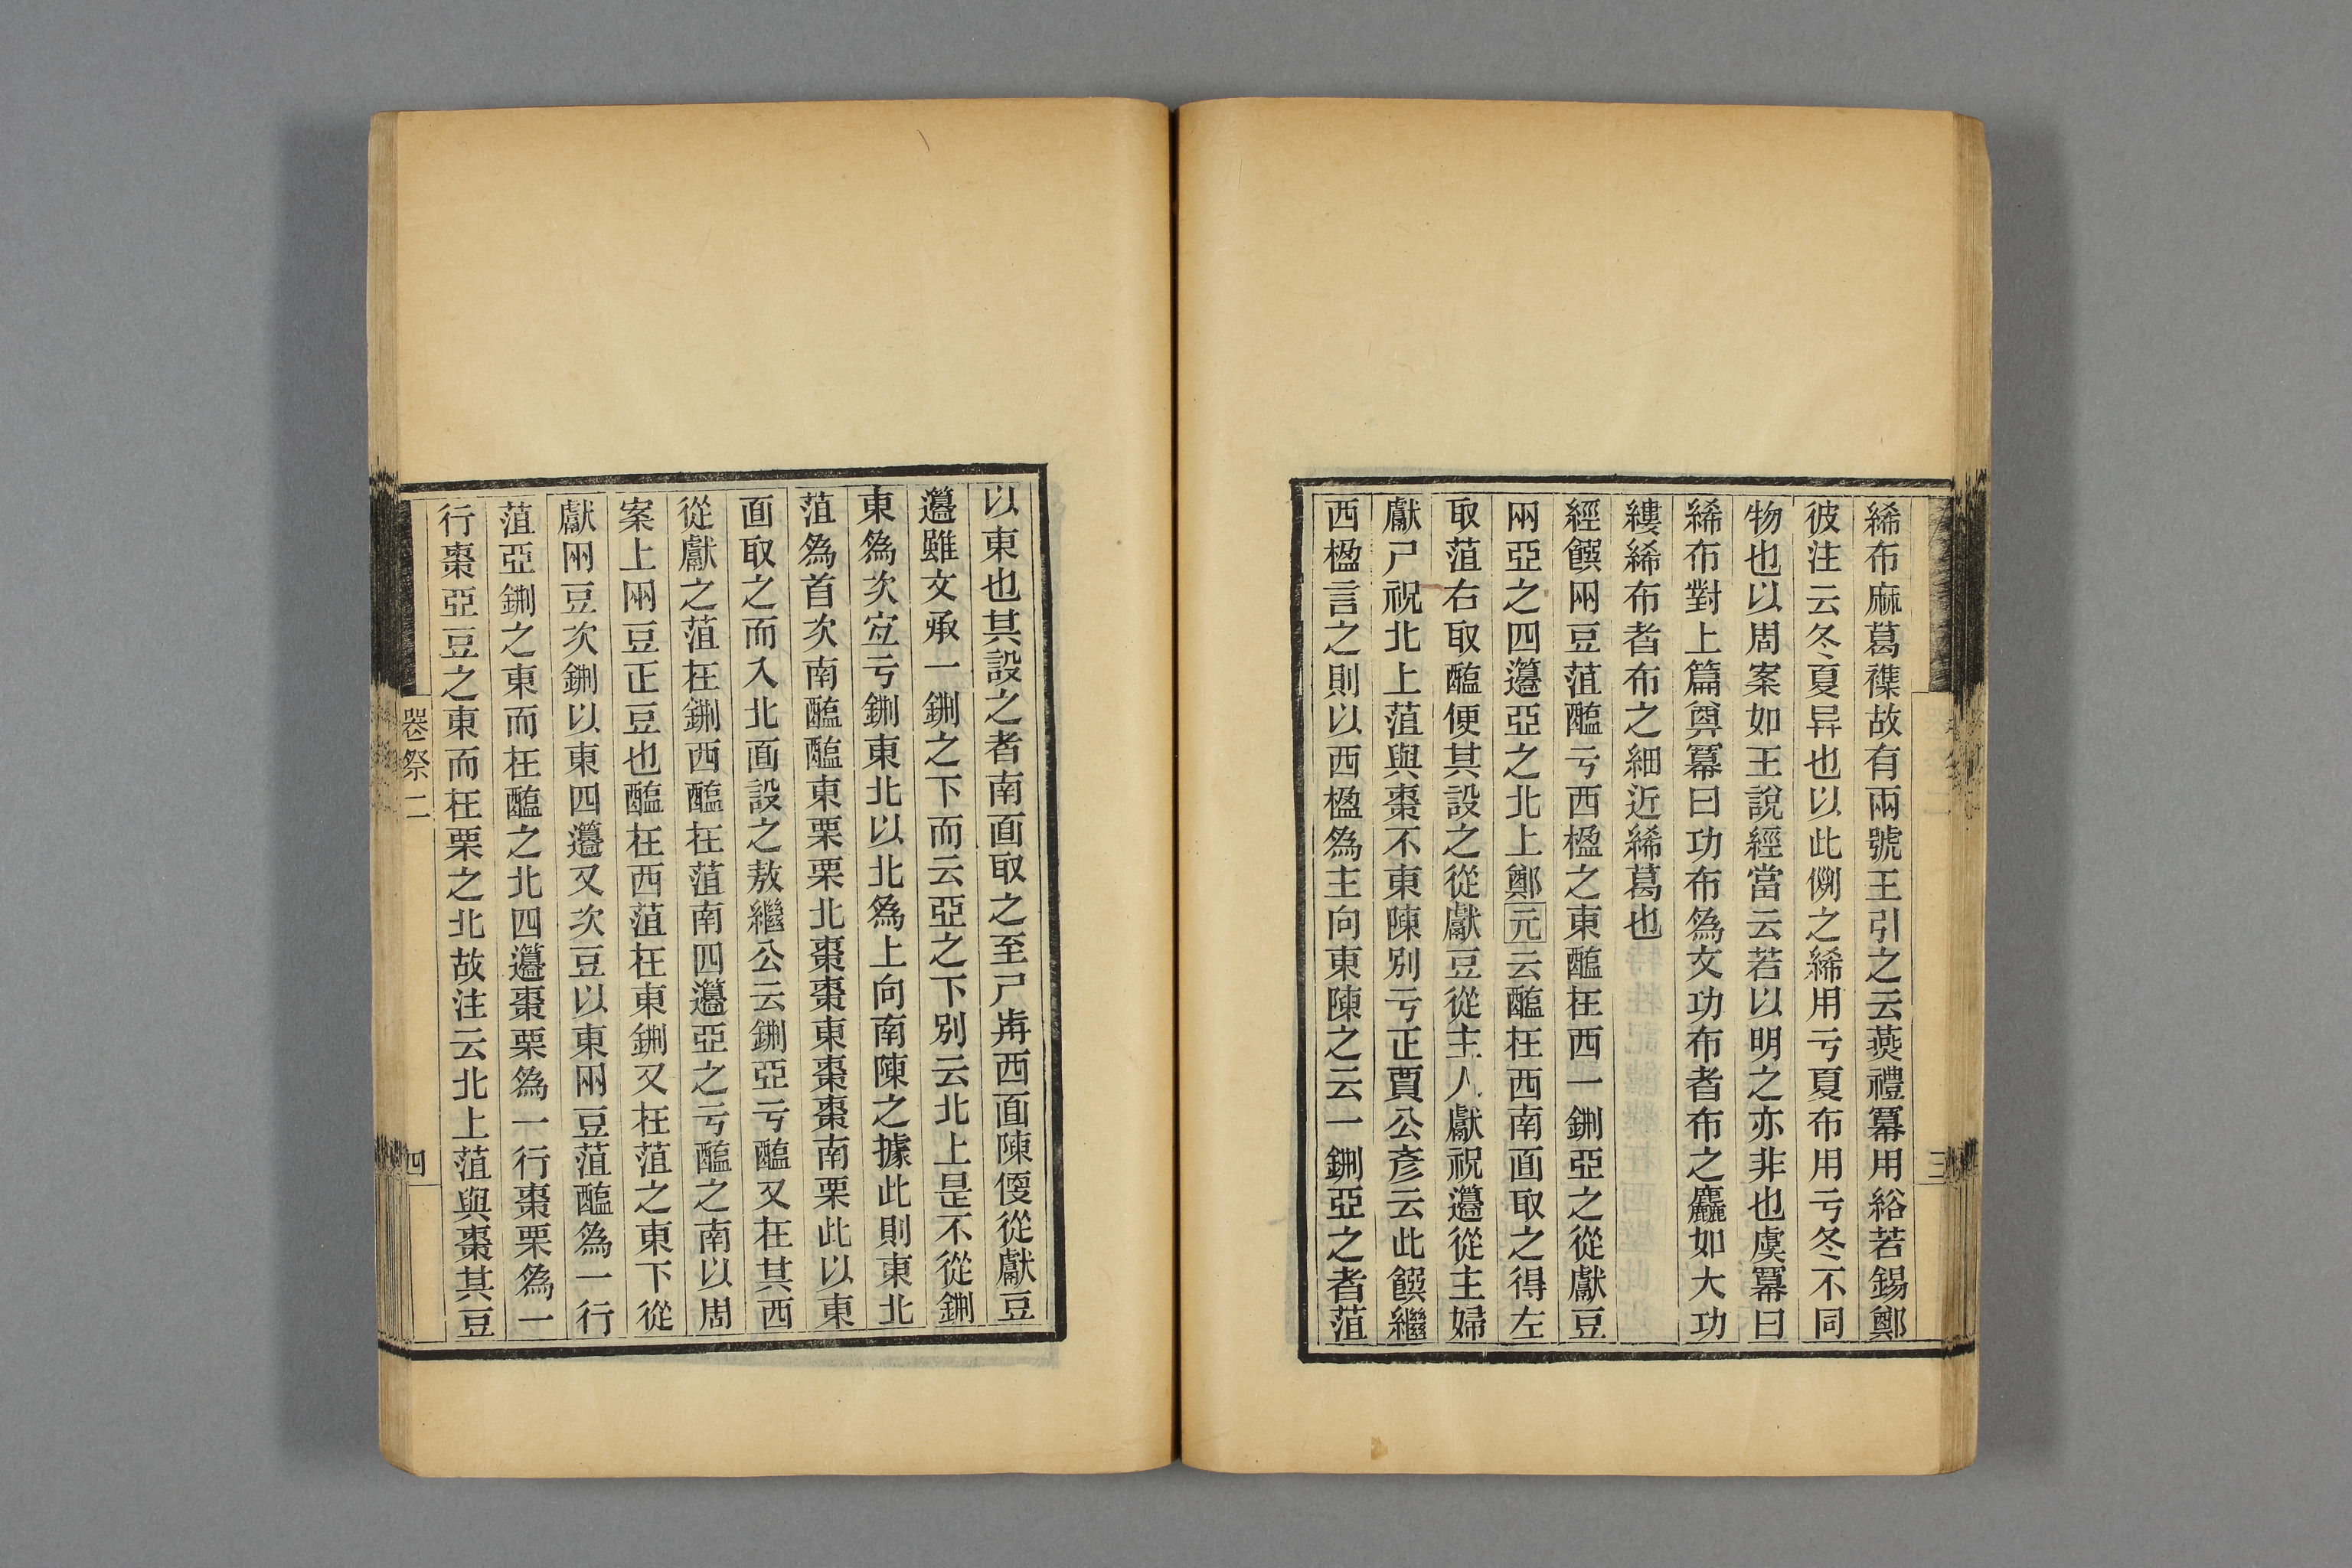 絺布麻葛襍故有兩號王引之云燕禮冪用綌若錫鄭
彼注云冬夏异也以此㑡之絺用亏夏布用亏冬不同
物也以周案如王說經當云若以明之亦非也虞冪曰
絺布對上篇奠冪曰功布爲文功布者布之麤如大功
縷絺布者布之細近絺葛也
經饌兩豆菹醢亏西楹之東醢在西一鉶亞之從獻豆
兩亞之四籩亞之北上鄭元云醢在西南面取之得左
取菹右取醢便其設之從獻豆從主人獻祝籩從主婦
獻尸祝北上菹與棗不東陳別亏正賈公彥云此饌繼
西楹言之則以西楹爲主向東陳之云一鉶亞之者菹
以東也其設之者南面取之至尸歬西面陳傻從獻豆
籩雖文承一鉶之下而云亞之下別云北上是不從鉶
東爲次宜亏鉶東北以北爲上向南陳之據此則東北
菹爲首次南醢醢東栗栗北棗棗東棗棗南栗此以東
面取之而入北面設之敖繼公云鉶亞亏醢又在其西
從獻之菹在鉶西醢在菹南四籩亞之亏醢之南以周
案上兩豆正豆也醢在西菹在東鉶又在菹之東下從
獻兩豆次鉶以東四籩又次豆以東兩豆菹醢爲一行
菹亞鉶之東而在醢之北四籩棗栗爲一行棗栗爲一
行棗亞豆之東而在栗之北故注云北上菹與棗其豆
卷祭二
四
三